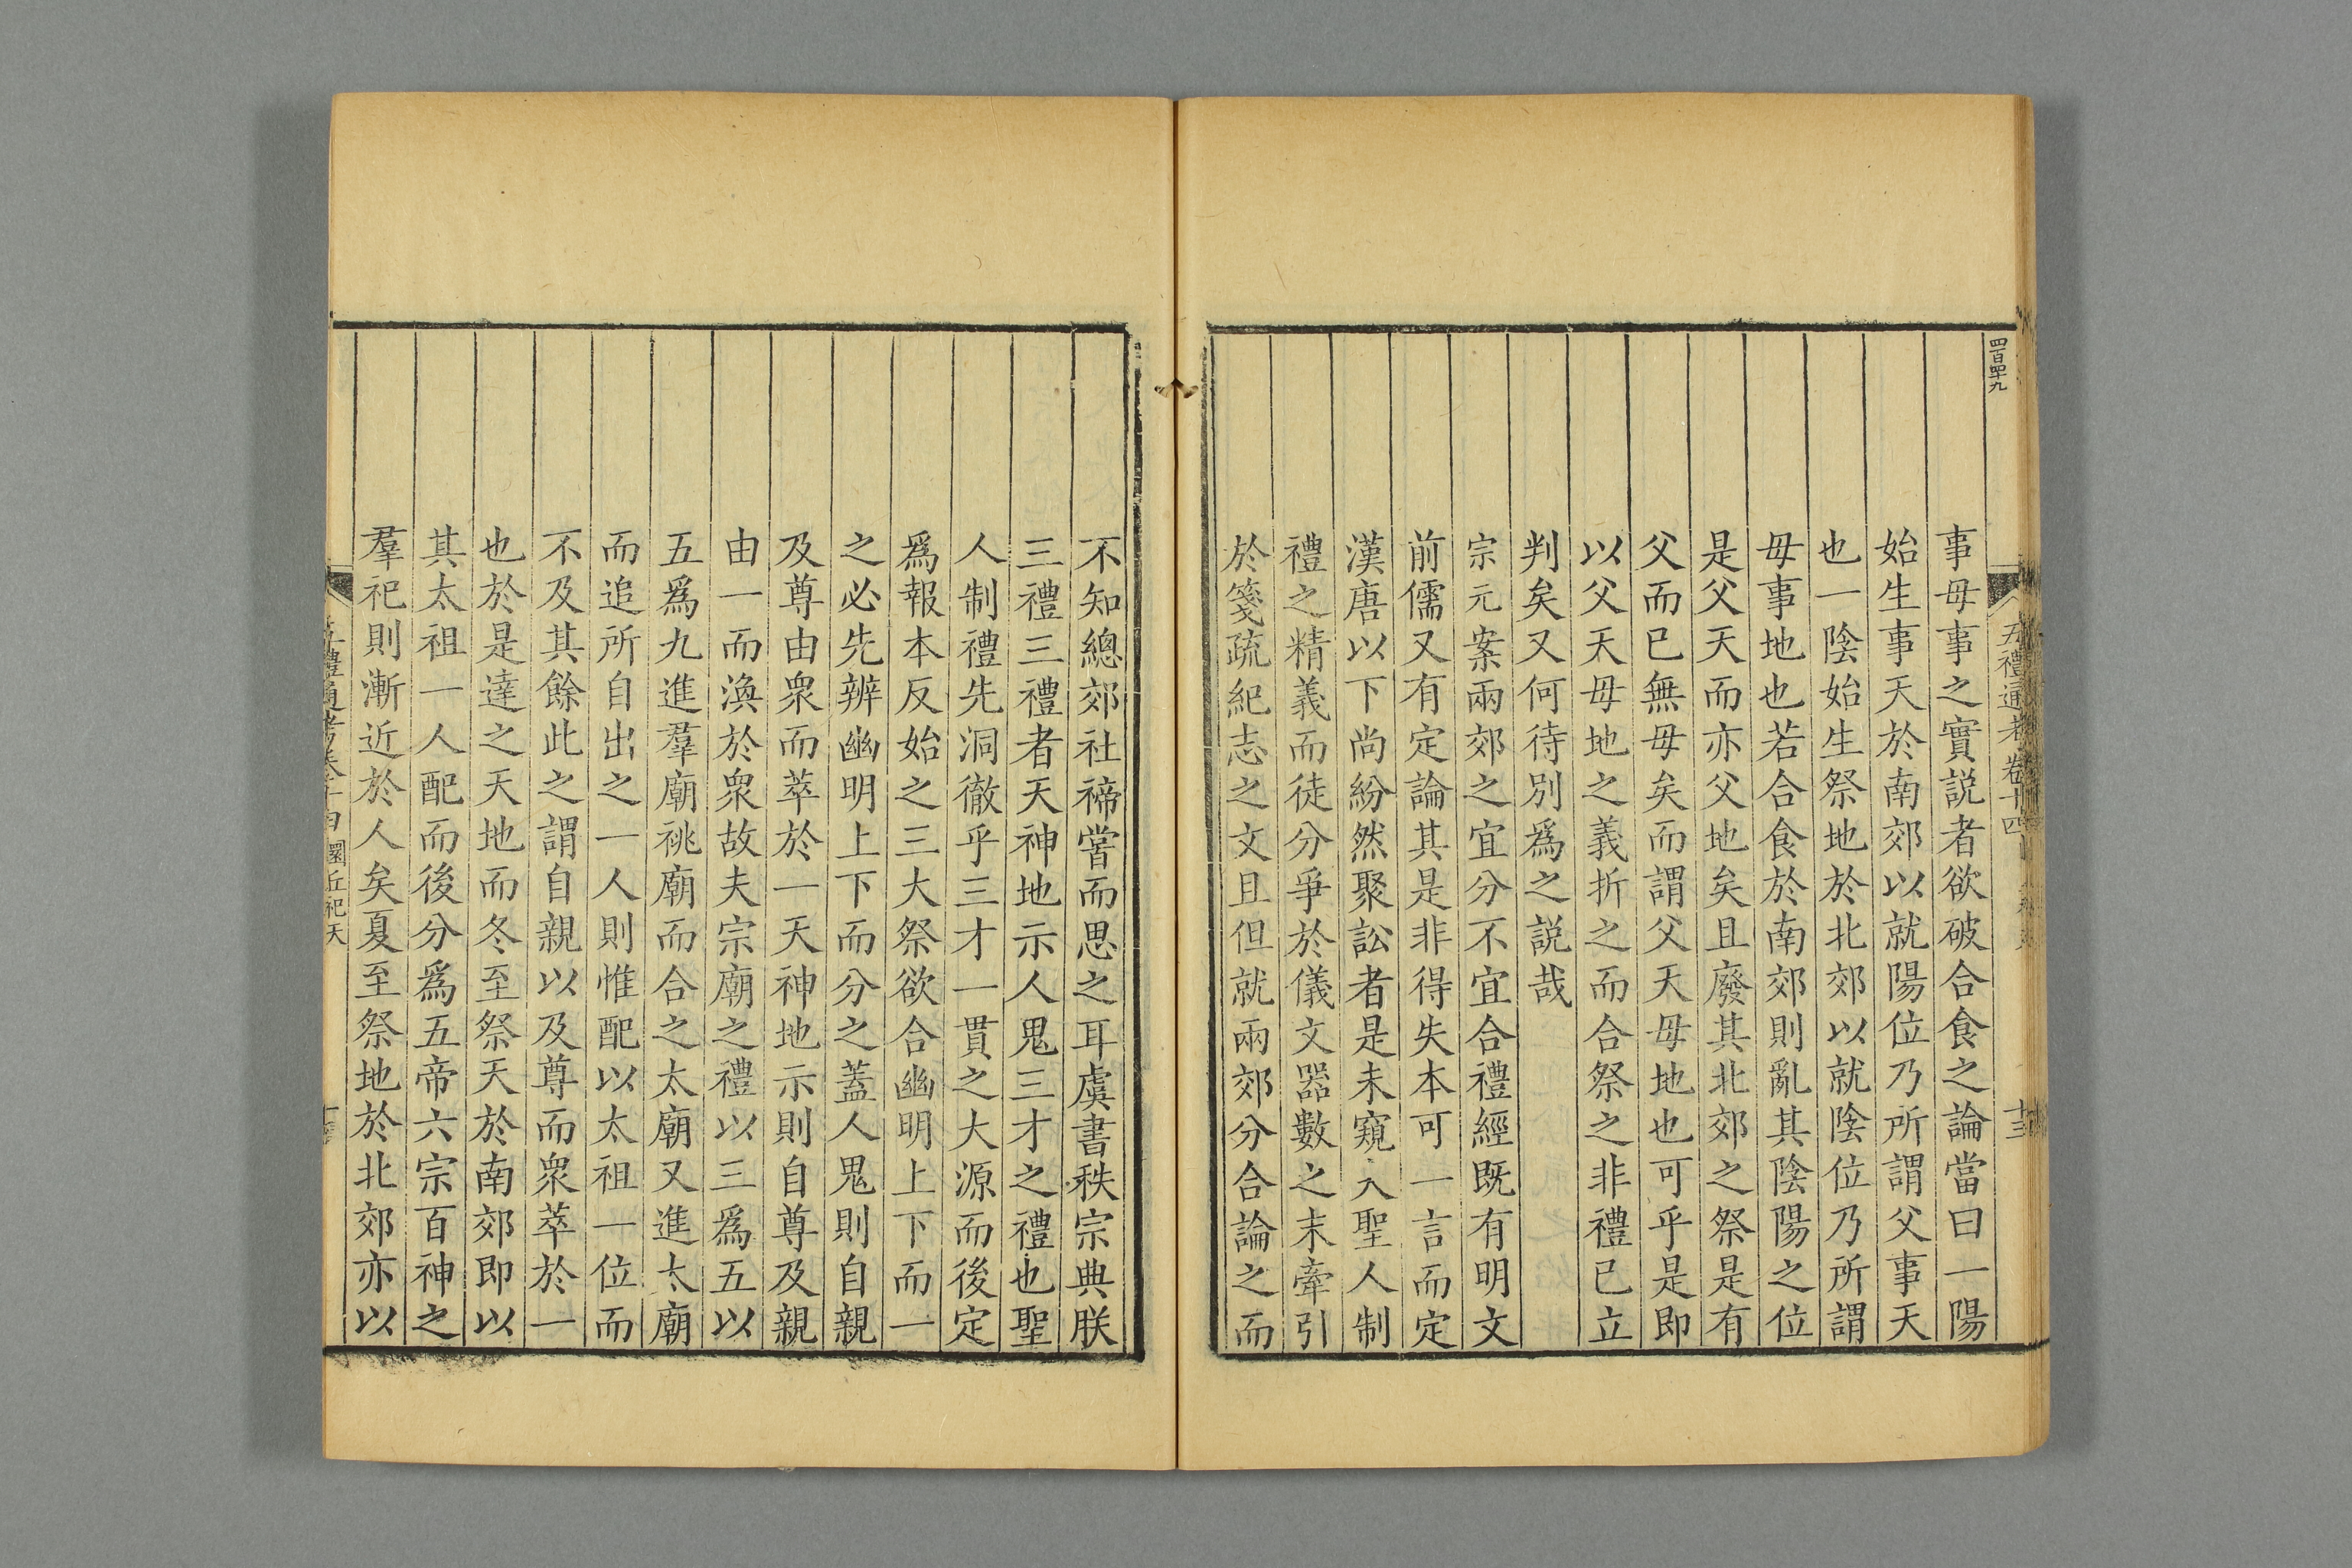 四百四十九
五禮通考卷十四
十三
事母事之實説者欲破合食之論當曰一陽
始生事天於南郊以就陽位乃所謂父事天
也一陰始生祭地於北郊以就陰位乃所謂
母事地也若合食於南郊則亂其陰陽之位
是父天而亦父地矣且廢其北郊之祭是有
父而已無母矣而謂父天母地也可乎是即
以父天母地之義折之而合祭之非禮已立
判矣又何待別爲之説哉
宗元案兩郊之宜分不宜合禮經既有明文
前儒又有定論其是非得失本可一言而定
漢唐以下尚紛然聚訟者是未窺入聖人制
禮之精義而徒分爭於儀文器數之末牽引
於箋疏紀志之文且但就兩郊分合論之而
不知總郊社禘嘗而思之耳虞書秩宗典朕
三禮三禮者天神地示人鬼三才之禮也聖
人制禮先洞徹乎三才一貫之大源而後定
爲報本反始之三大祭欲合幽明上下而一
之必先辨幽明上下而分之蓋人鬼則自親
及尊由衆而萃於一天神地示則自尊及親
由一而渙於衆故夫宗廟之禮以三爲五以
五爲九進羣廟祧廟而合之太廟又進太廟
而追所自出之一人則惟配以太祖一位而
不及其餘此之謂自親以及尊而衆萃於一
也於是達之天地而冬至祭天於南郊即以
其太祖一人配而後分爲五帝六宗百神之
羣祀則漸近於人矣夏至祭地於北郊亦以
五禮通考卷十四 圜丘祀天